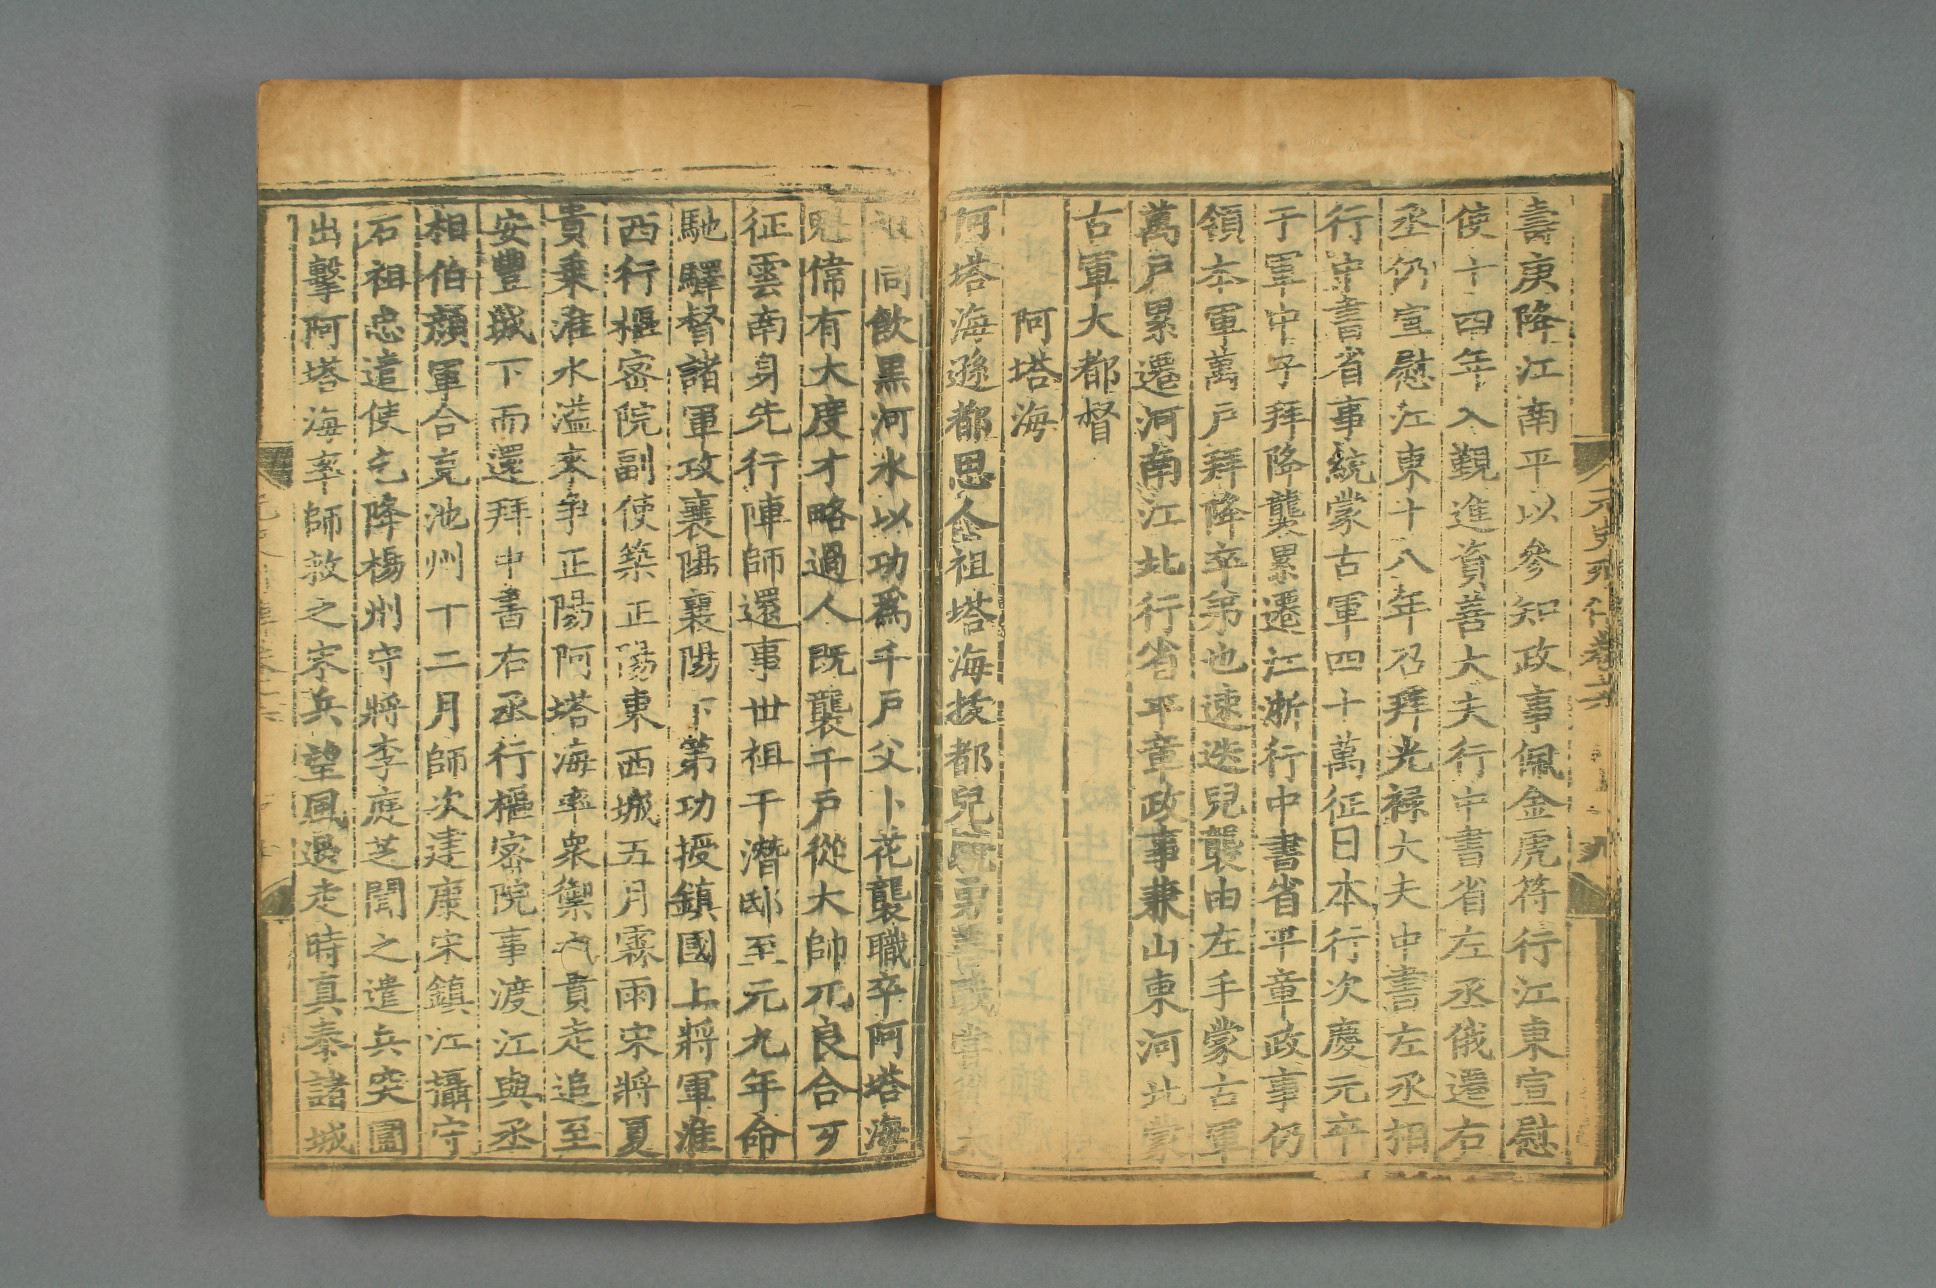 壽庚降江南平以參知政事佩金虎符行江東宣慰
使十四年入覲進資善大夫行中書省左丞俄還右
丞仍宣慰江東十八年召拜光祿大夫中書左丞相
行中書省事統蒙古軍四十萬征日本行次慶元卒
于軍中子拜降襲累遷江浙行中書省平章政事仍
領本軍萬戶拜降卒弟也速迭兒襲由左手蒙古軍
萬戶累遷河南江北行省平章政事兼山東河北蒙
古軍大都督
阿塔海
阿塔海遜都思人祖塔海拔都兒驍勇善戰嘗從太
祖同飲黑河水以功爲千戶父卜花襲職卒阿塔海
魁偉有大度才略過人既襲千戶從大帥兀良合歹
征雲南身先行陣師還事世祖于潛邸至元九年命
馳驛督諸軍攻襄陽襄陽下第功授鎮國上將軍淮
西行樞密院副使築正陽東西城五月霖雨宋將夏
貴乘淮水溢來爭正陽阿塔海率衆禦之貴走追至
安豐城下而還拜中書右丞行樞密院事渡江與丞
相伯顏軍合克池州十二月師次建康宋鎮江攝守
石祖忠遣使乞降楊州守將李庭芝聞之遣兵突圍
出擊阿塔海率師救之宋兵望風退走時真泰諸城